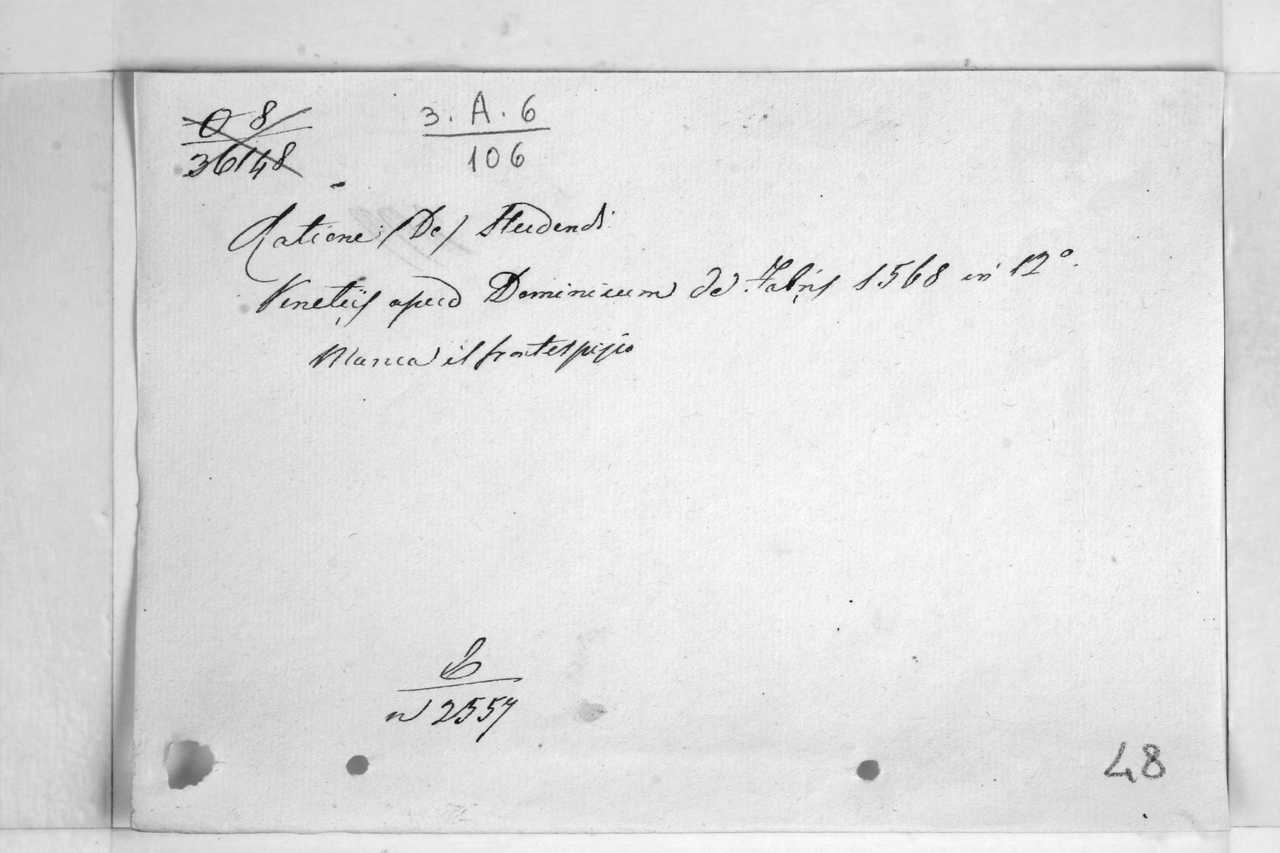 O 8
36148
3. A. 6
106
Ratione (De) Studendi
Venetiis apud Dominicum de Fabris 1568 in 12º.
Manca il frontespizio
n 2557
48